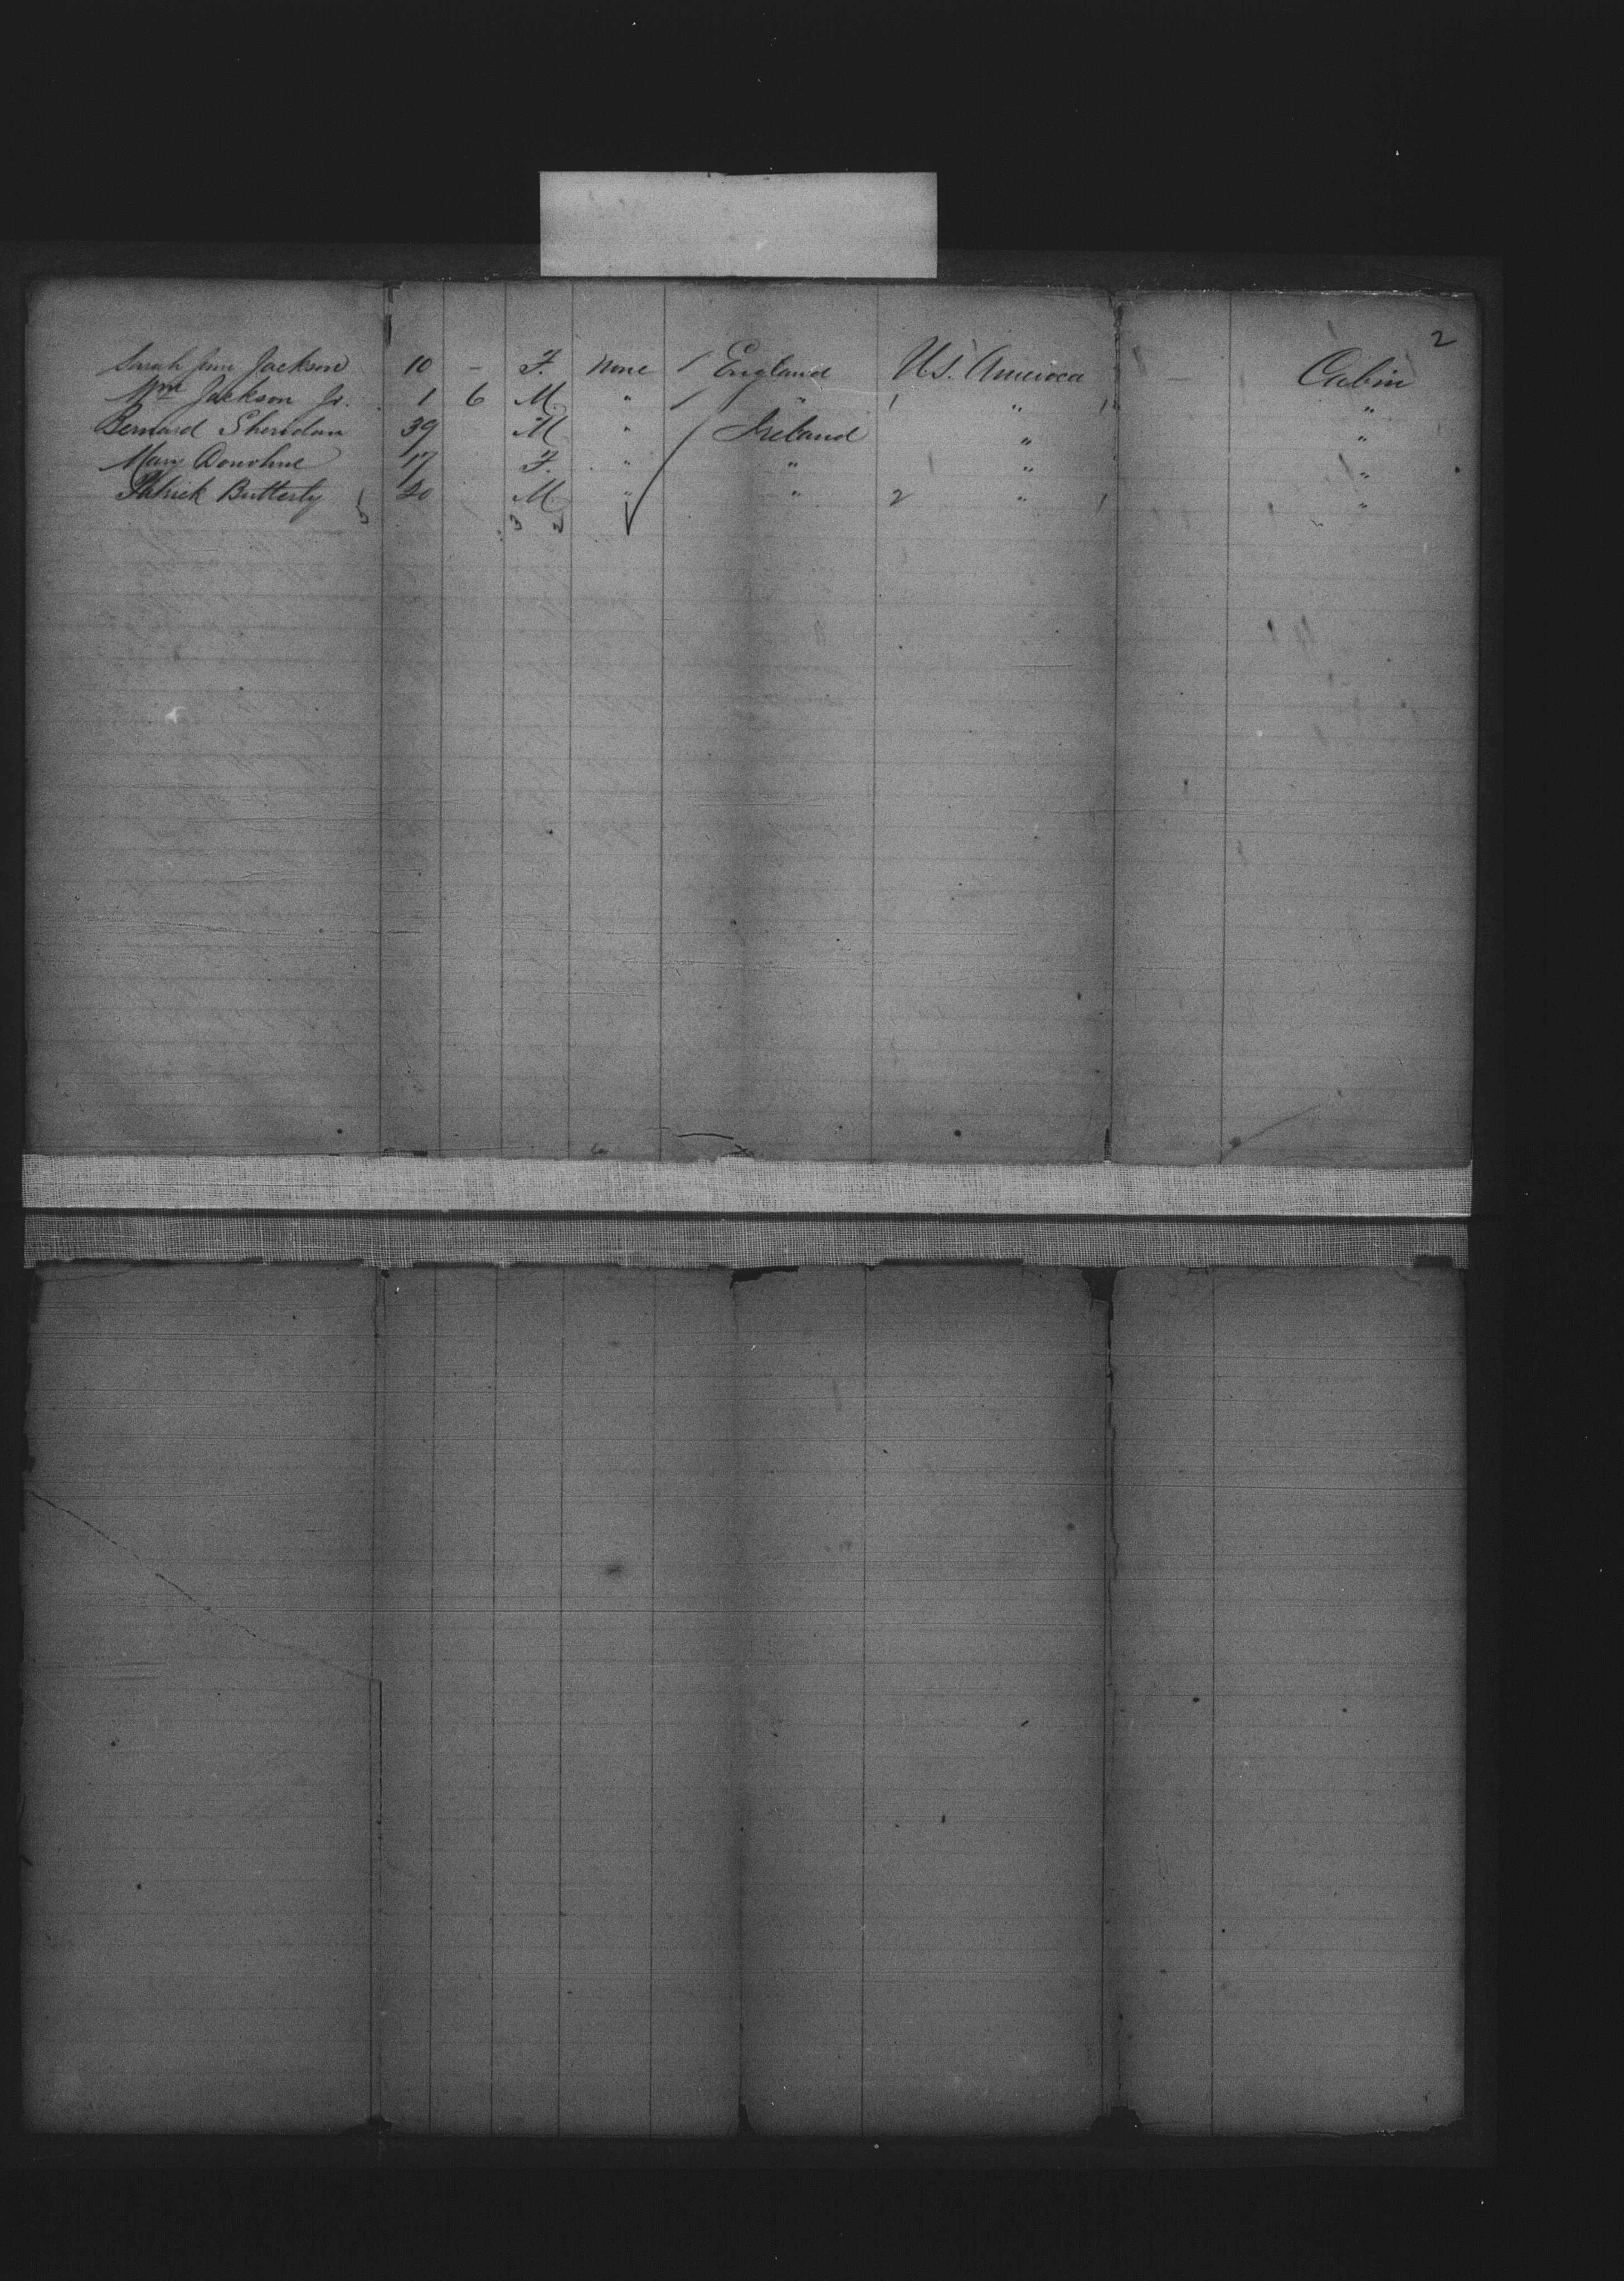 2
Sarah Jane Jackson 10 - F. None / England U.S. America - Cabin
Wm Jackson Jr. 1 6 M " / " 1 " 1 "
Bernard Sheridan 39 M " / Ireland " "
Mary Donohue 17 F. " " " "
Patrick Butterly 20 M " " 2 " 1 "
5 3 2